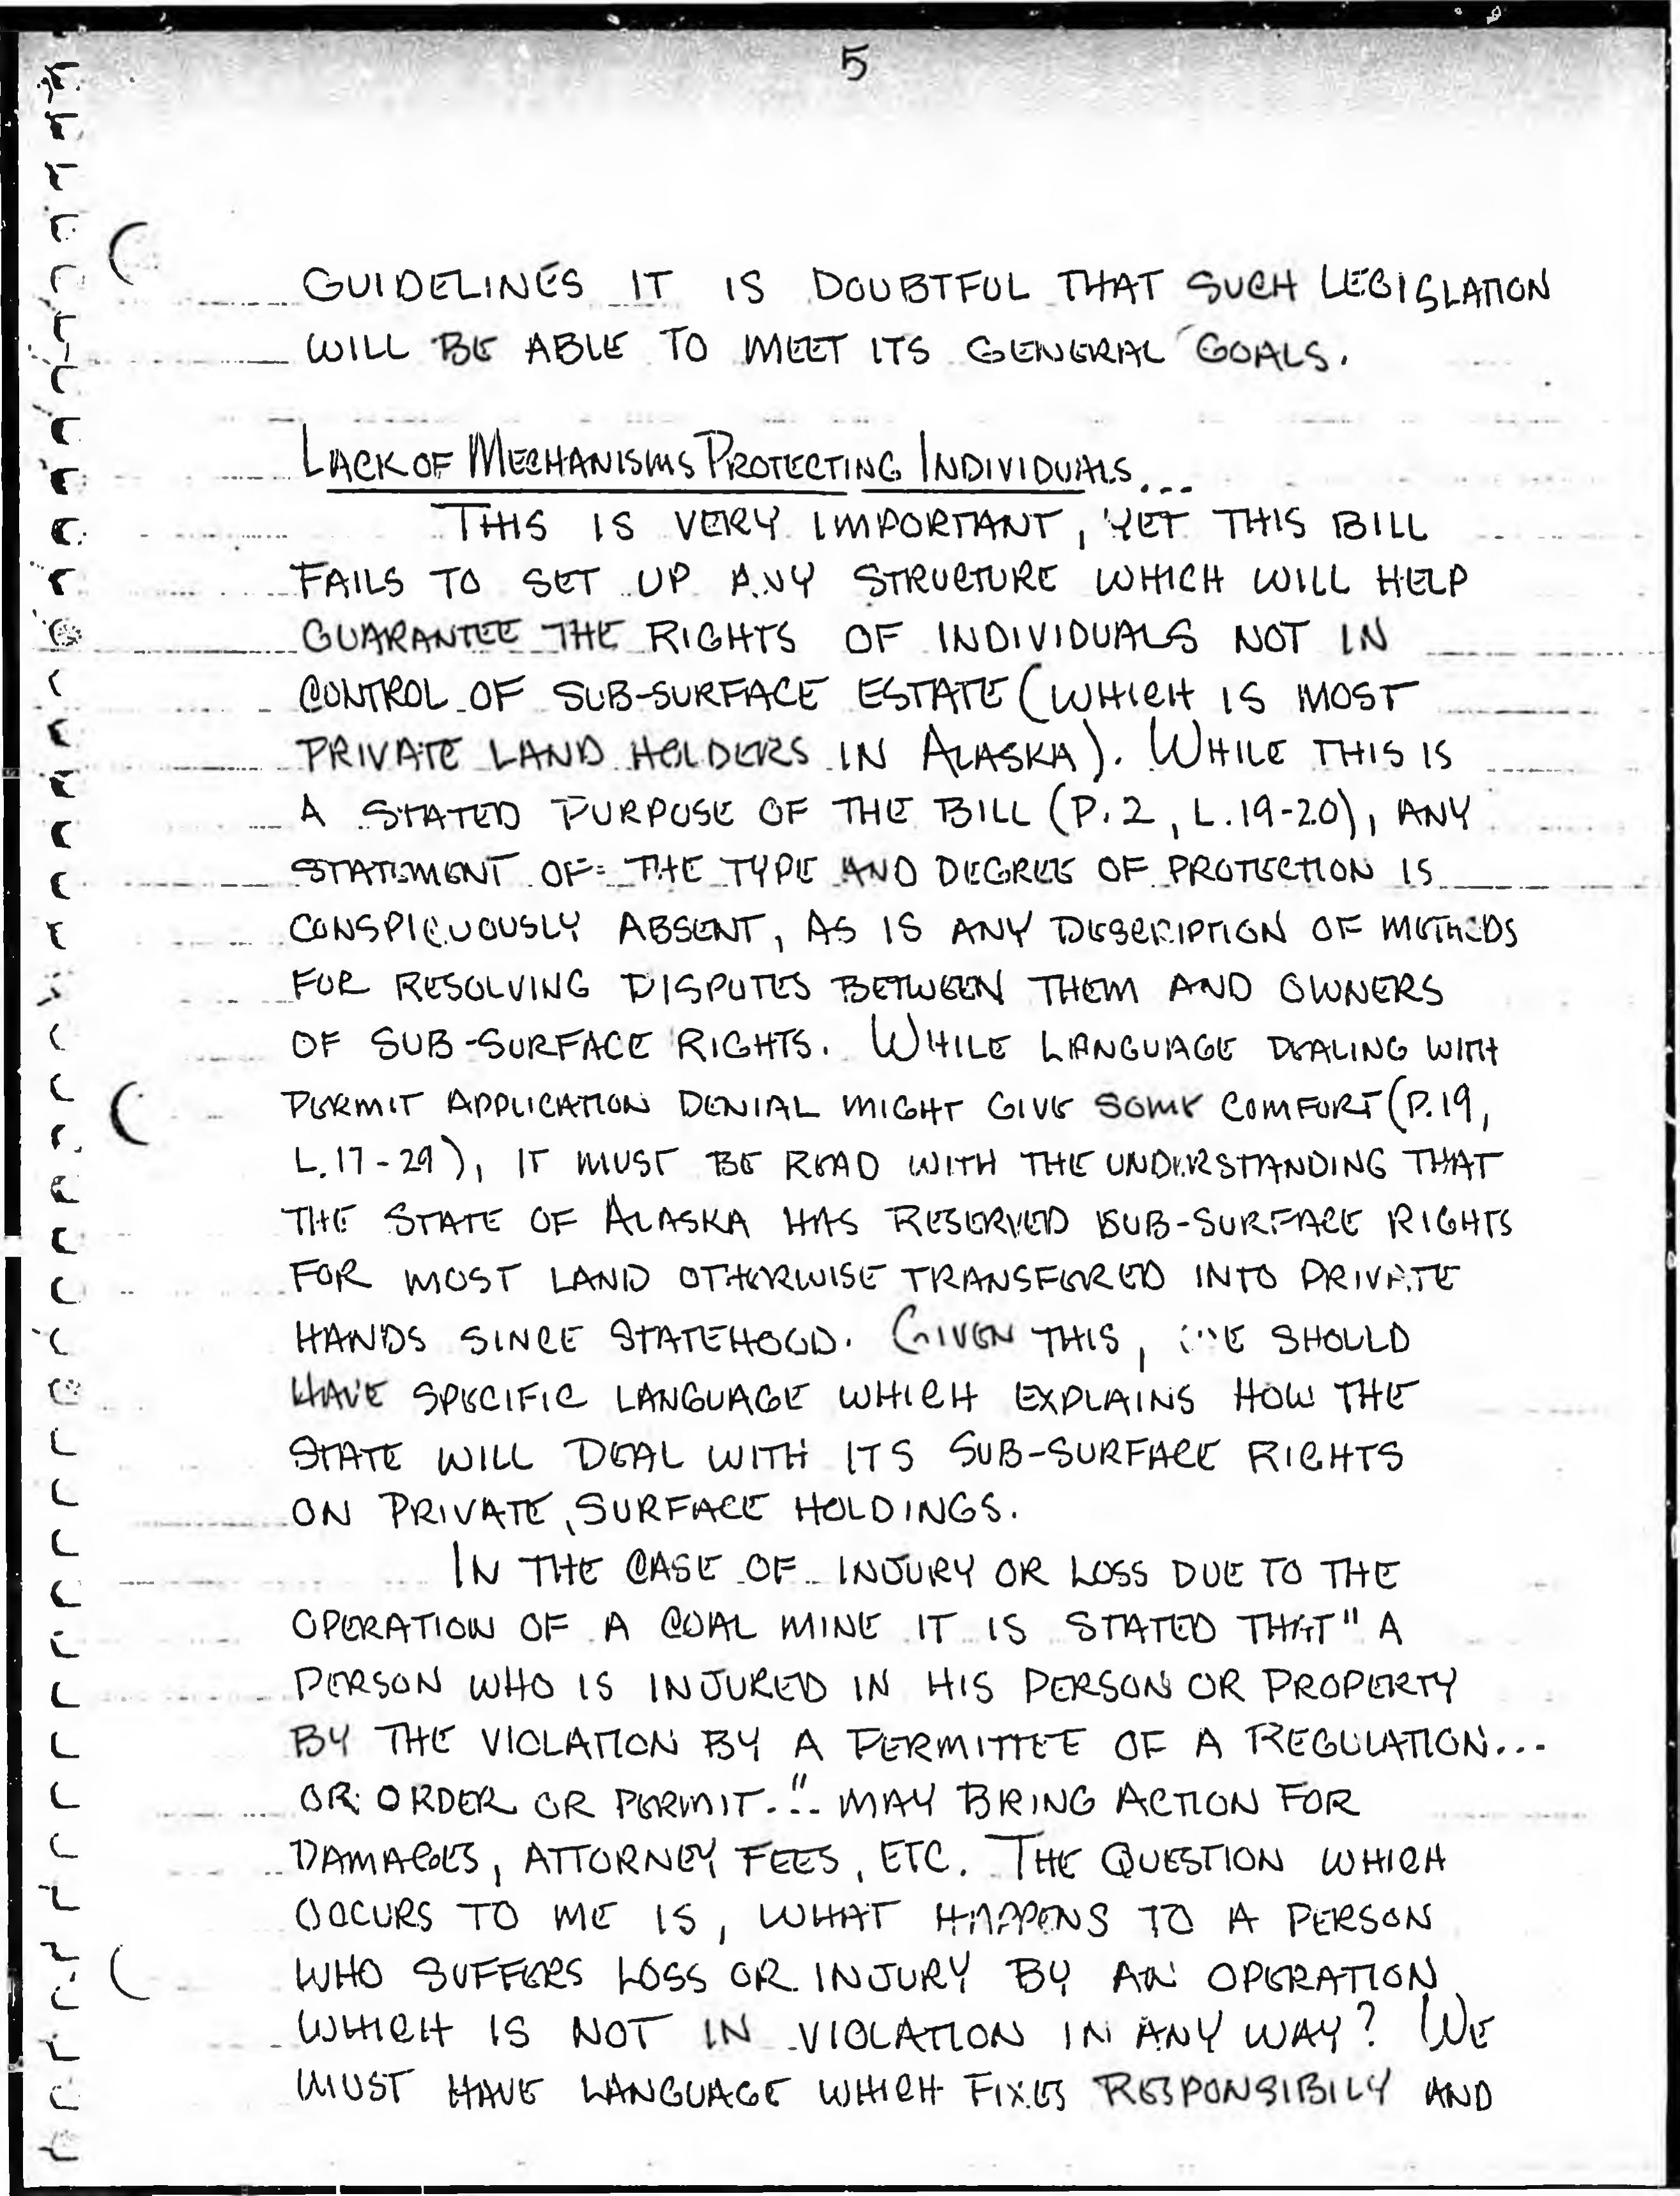 5
GUIDELINES IT IS DOUBTFUL THAT SUCH LEGISLATION
WILL BE ABLE TO MEET ITS GENERAL GOALS.
LACK OF MECHANISMS PROTECTING INDIVIDUALS...
THIS IS VERY IMPORTANT, YET THIS BILL
FAILS TO SET UP ANY STRUCTURE WHICH WILL HELP
GUARANTEE THE RIGHTS OF INDIVIDUALS NOT IN
CONTROL OF SUB-SURFACE ESTATE (WHICH IS MOST
PRIVATE LAND HOLDERS IN ALASKA). WHILE THIS IS
A STATED PURPOSE OF THE BILL (P.2, L.19-20), ANY
STATEMENT OF THE TYPE AND DEGREE OF PROTECTION IS
CONSPICUOUSLY ABSENT, AS IS ANY DESCRIPTION OF METHODS
FOR RESOLVING DISPUTES BETWEEN THEM AND OWNERS
OF SUB-SURFACE RIGHTS. WHILE LANGUAGE DEALING WITH
PERMIT APPLICATION DENIAL MIGHT GIVE SOME COMFORT (P.19,
L.17-29), IT MUST BE READ WITH THE UNDERSTANDING THAT
THE STATE OF ALASKA HAS RESERVED SUB-SURFACE RIGHTS
FOR MOST LAND OTHERWISE TRANSFERED INTO PRIVATE
HANDS SINCE STATEHOOD. GIVEN THIS, WE SHOULD
HAVE SPECIFIC LANGUAGE WHICH EXPLAINS HOW THE
STATE WILL DEAL WITH ITS SUB-SURFACE RIGHTS
ON PRIVATE, SURFACE HOLDINGS.
IN THE CASE OF INJURY OR LOSS DUE TO THE
OPERATION OF A COAL MINE IT IS STATED THAT "A
PERSON WHO IS INJURED IN HIS PERSON OR PROPERTY
BY THE VIOLATION BY A PERMITTEE OF A REGULATION...
OR ORDER OR PERMIT..." MAY BRING ACTION FOR
DAMAGES, ATTORNEY FEES, ETC. THE QUESTION WHICH
OCCURS TO ME IS, WHAT HAPPENS TO A PERSON
WHO SUFFERS LOSS OR INJURY BY AN OPERATION
WHICH IS NOT IN VIOLATION IN ANY WAY? WE
MUST HAVE LANGUAGE WHICH FIXES RESPONSIBILY AND